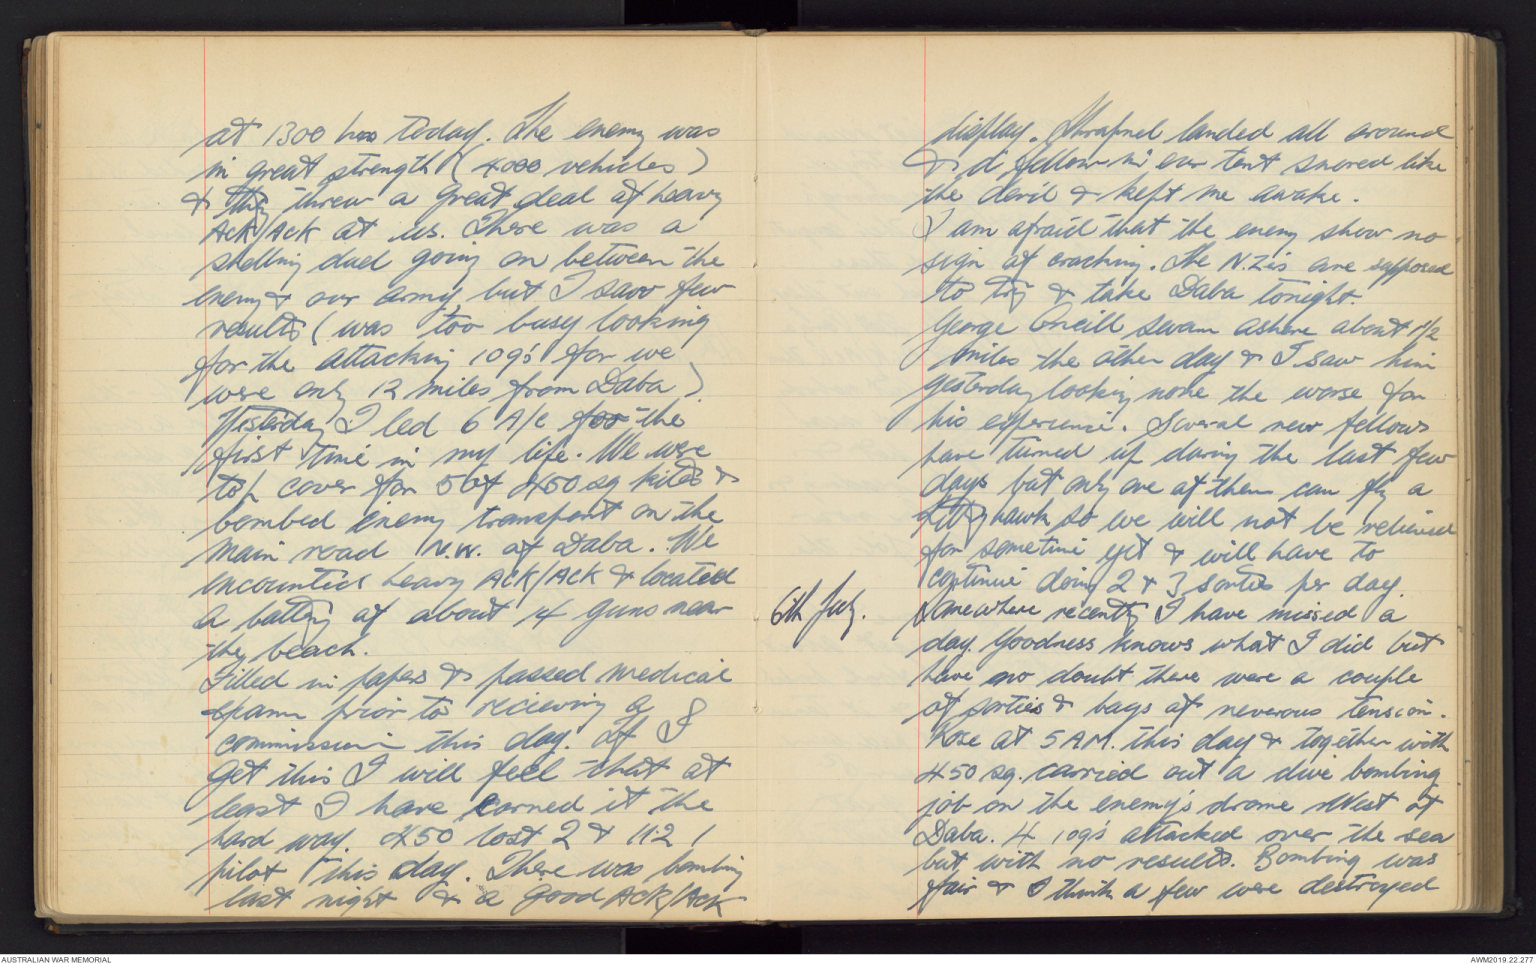 at 1300 hrs today. The enemy was
in great strength (4000 vehicles)
& they threw a great deal of heavy
ACK/ACK at us. There was a
shelling duel going on between the
enemy & our army, but I saw few
results (was too busy looking
for the attacking 109's for we
were only 12 miles from Daba)
Yesterday I led 6 A/C for the
first time in my life. We were
top cover for 5 of 450 sq kites &
bombed enemy transport on the
main road N.W. of Daba. We
encounted heavy ACK/ACK & located
a battery of about 14 guns near
the beach.
Filled in papers & passed medical
exam prior to recieving a
commission this day. If I
get this I will feel that at
least I have earned it the
hard way. 450 lost 2 & 112 1
pilot this day. There was bombing
last night & a good ACK/ACK
display. Shrapnel landed all around
& a fellow in our tent snored like
the devil & kept me awake.
I am afraid that the enemy show no
sign of cracking. The N.Z'is are supposed
to try & take Daba tonight.
George Oneill swam ashore about 1 1/2
miles the other day & I saw him
yesterday looking none the worse for
his experience. Several new fellows
have turned up during the last few
days but only one of them can fly a
Kitty hawk so we will not be relieved
for sometime yet & will have to
continue doing 2 & 3 sorties per day.
6th July. Somewhere recently I have missed a
day. Goodness knows what I did but
have no doubt there were a couple
of sorties & bags of neverous tension.
Rose at 5 AM. this day & together with
450 sq. carried out a dive bombing
job on the enemy's drome West of
Daba. 4 109's attacked over the sea
but with no results. Bombing was
fair & I think a few were destroyed
AUSTRALIAN WAR MEMORIAL
AWM2019.22.277